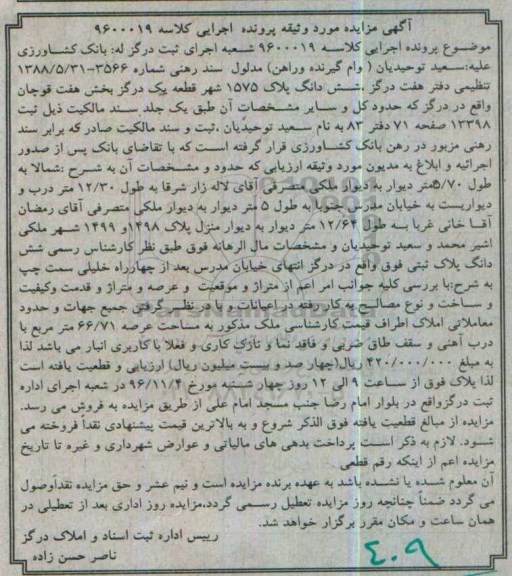 آگهی مزایده مورد وثیقه پرونده اجرایی کلاسه ۹۶۰۰۰۱۹
موضوع پرونده اجرایی کلاسه ۹۶۰۰۰۱۹ شعبه اجرای ثبت درگز له: بانک کشاورزی
علیه:سعید توحیدیان ( وام گیرنده وراهن) مدلول سند رهنی شماره ۳۵۶۶-۱۳۸۸/۵/۳۱
تنظیمی دفتر هفت درگز ،شش دانگ پلاک ۱۵۷۵ شهر قطعه یک درگز بخش هفت قوچان
واقع در درگز که حدود کل و سایر مشخصات آن طبق یک جلد سند مالکیت ذیل ثبت
۱۳۳۹۸ صفحه ۷۱ دفتر ۸۳ به نام سعید توحیدیان ،ثبت و سند مالکیت صادر که برابر سند
رهنی مزبور در رهن بانک کشاورزی قرار گرفته است که با تقاضای بانک پس از صدور
اجرائیه و ابلاغ به مدیون مورد وثیقه ارزیابی که حدود و مشخصات آن به شرح :شمالا به
طول ۵/۷۰متر دیوار به دیوار ملکی متصرفی آقای لاله زار شرقا به طول ۱۲/۳۰ متر درب و
دیواریست به خیابان مدرس جنوبا به طول ۵ متر دیوار به دیوار ملکی متصرفی آقای رمضان
آقا خانی غربا به طول ۱۲/۶۴ متر دیوار به دیوار منزل پلاک ۱۴۹۸و ۱۴۹۹ شهر ملکی
اشیر محمد و سعید توحیدیان و مشخصات مال الرهانه فوق طبق نظر کارشناس رسمی شش
دانگ پلاک ثبتی فوق واقع در درگز انتهای خیابان مدرس بعد از چهارراه خلیلی سمت چپ
به شرح:با بررسی کلیه جوانب امر اعم از متراژ و موقعیت و عرصه و متراژ و قدمت وکیفیت
و ساخت و نوع مصالح به کار رفته در اعیانات ، با در نظر گرفتن جمیع جهات و حدود
معاملاتی املاک اطراف قیمت کارشناسی ملک مذکور به مساحت عرصه ۶۶/۷۱ متر مربع با
درب آهنی و سقف طاق ضربی و فاقد نما و نازک کاری و فعلا با کاربری انبار می باشد لذا
به مبلغ ۴۲۰/۰۰۰/۰۰۰ ریال(چهار صد و بیست میلیون ریال) ارزیابی و قطعیت یافته است
لذا پلاک فوق از ساعت ۹ الی ۱۲ روز چهار شنبه مورخ ۹۶/۱۱/۴ در شعبه اجرای اداره
ثبت درگزواقع در بلوار امام رضا جنب مسجد امام علی از طریق مزایده به فروش می رسد.
مزایده از مبالغ قطعیت یافته فوق الذکر شروع و به بالاترین قیمت پیشنهادی نقدا فروخته می
شود. لازم به ذکر است پرداخت بدهی های مالیاتی و عوارض شهرداری و غیره تا تاریخ
مزایده اعم از اینکه رقم قطعی
آن معلوم شده یا نشده باشد به عهده برنده مزایده است و نیم عشر و حق مزایده نقداوصول
می گردد ضمناً چنانچه روز مزایده تعطیل رسمی گردد،مزایده روز اداری بعد از تعطیلی در
همان ساعت و مکان مقرر برگزار خواهد شد.
رییس اداره ثبت اسناد و املاک درگز
ناصر حسن زاده
۴۰۹